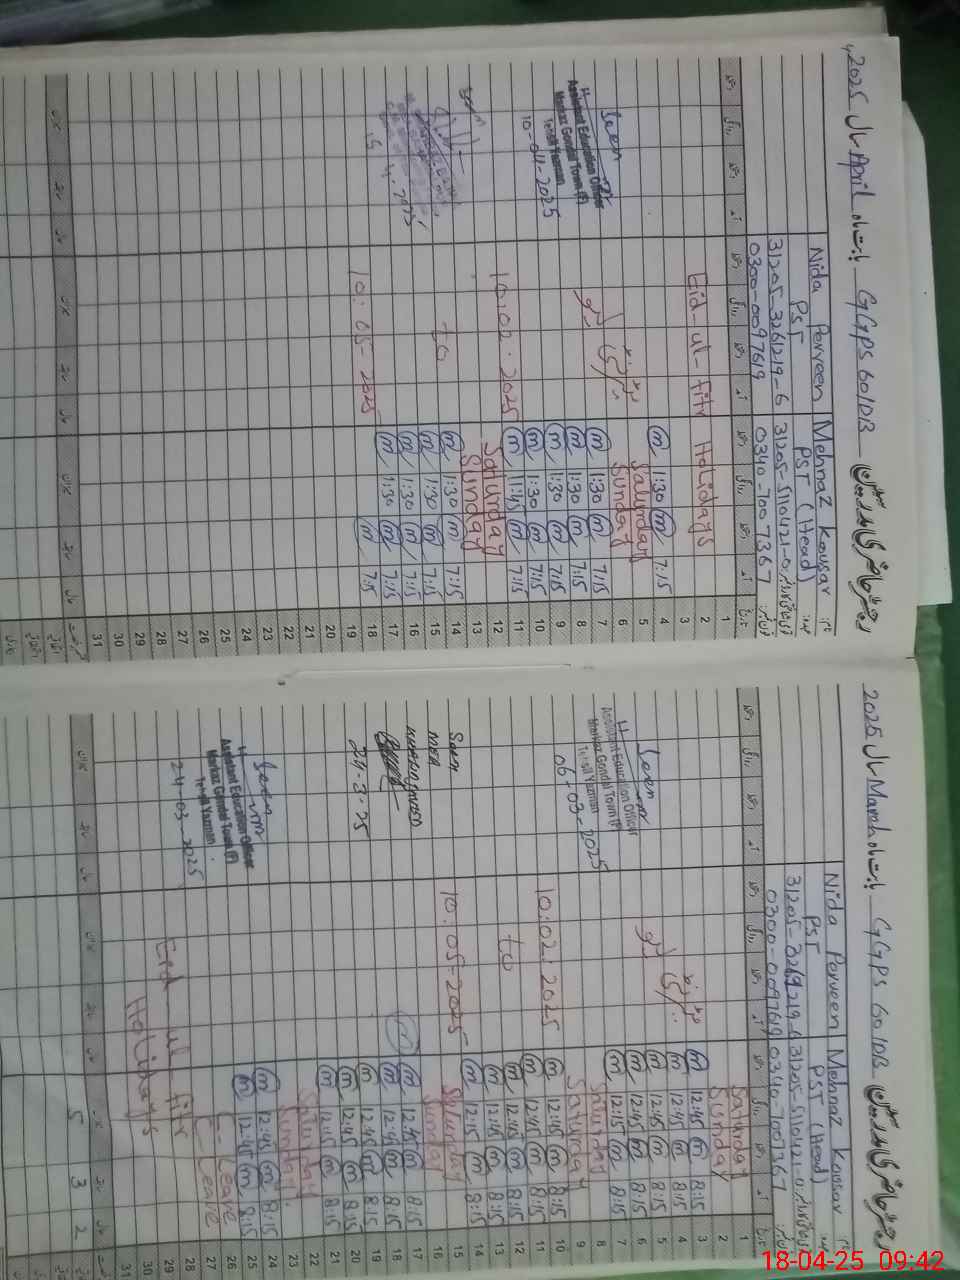 رجسٹر حاضری مدرسین GGPS 60/DB بابت ماہ April سال 2025
Mehnaz Kousar
PST (Head)
31205-5110421-0
0340-7007367
Nida Perveen
PST
31205-3261219-6
0300-0097619
1
2 Eid-ul-Fitr Holidays
3
4 7:15 m 1:30 m
5 Saturday
6 Sunday
7 7:15 m 1:30 m
8 7:15 m 1:30 m
9 7:15 m 1:30 m
10 7:15 m 1:30 m
11 7:15 m 11:45 m
12 Saturday
13 Sunday
14 7:15 m 1:30 m
15 7:15 m 1:30 m
16 7:15 m 1:30 m
17 7:15 m 1:30 m
18 7:15 m
19
20
21
22
23
24
25
26
27
28
29
30
31
10:02.2025
to
10:05-2025
Seen
Assistant Education Officer
Markaz Gondal Town (F)
Tehsil Yazman
10-04-2025
رجسٹر حاضری مدرسین GGPS 60/DB بابت ماہ March سال 2025
Mehnaz Kousar
PST (Head)
31205-5110421-0
0340-7007367
Nida Perveen
PST
31205-3261219-6
0300-0097619
1 Saturday
2 Sunday
3 8:15 m 12:45 m
4 8:15 m 12:45 m
5 8:15 m 12:45 m
6 8:15 m 12:45 m
7 8:15 m 12:15 m
8 Saturday
9 Saturday
10 8:15 m 12:45 m
11 8:15 m 12:45 m
12 8:15 m 12:45 m
13 8:15 m 12:45 m
14 8:15 m 12:15 m
15 Saturday
16 Sunday
17 8:15 m 12:45 m
18 8:15 m 12:45 m
19 8:15 m 12:45 m
20 8:15 m 12:45 m
21 8:15 m 12:15 m
22 Saturday
23 Sunday
24 8:15 m 12:45 m
25 8:15 m 12:45 m
26 C-Leave
27 C-Leave
28
29 Eid ul Fitr
30 Holidays
31
2 3 5
10:02.2025
to
10:05-2025
Seen
Assistant Education Officer
Markaz Gondal Town (F)
Tehsil Yazman
06-03-2025
Seen
MEA
24-3-25
Seen
Assistant Education Officer
Markaz Gondal Town (F)
Tehsil Yazman
24-03-2025
18-04-25 09:42